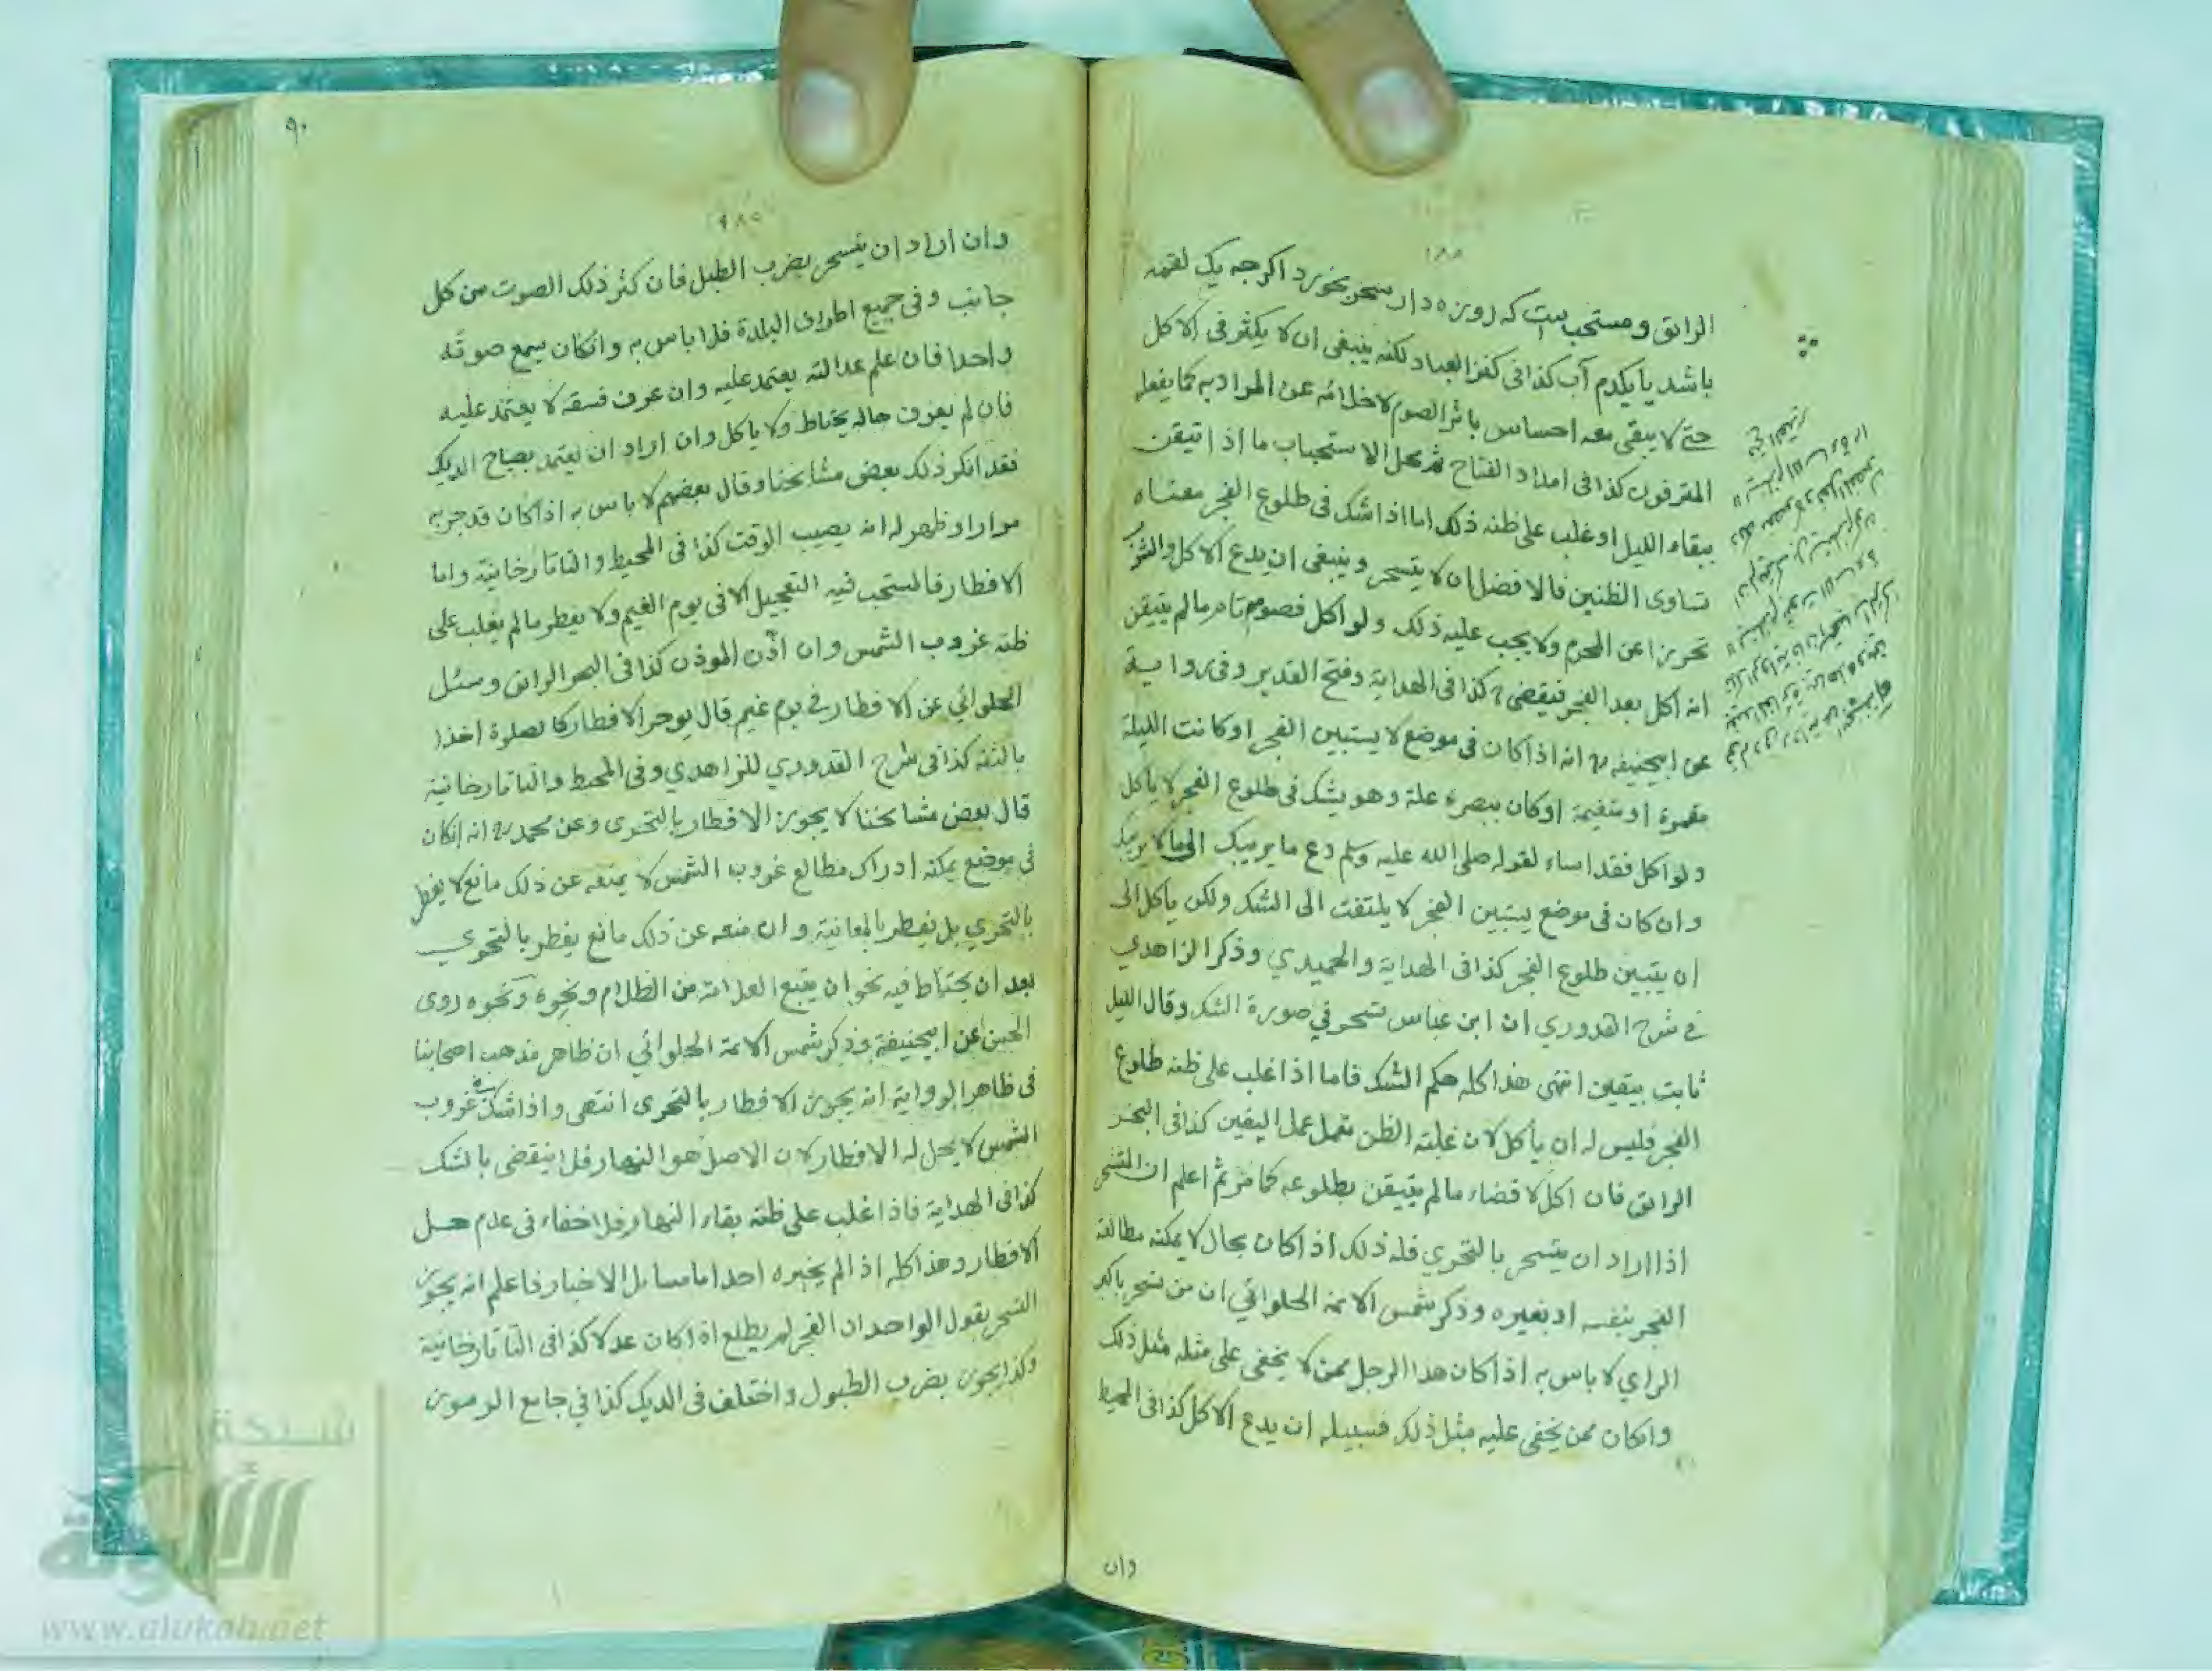 الرائق ومستحب است كه روزه دار سحر بخورد اكرچه يك لقمه
باشد يا يكدم آب كذا فى كنز العباد لكنه ينبغى ان لا يكثر فى الاكل
حتى لا يبقى معه احساس باثر الصوم لاخلائه عن المراد به كما يفعله
المترفون كذا فى امداد الفتاح ثم محل الاستحباب ما اذا تيقن
ببقاء الليل او غلب على ظنه ذلك اما اذا شك فى طلوع الفجر معناه
تساوى الظنين فالافضل ان لا يتسحر وينبغى ان يدع الاكل والشرب
تحرزا عن المحرم ولا يجب عليه ذلك ولو اكل فصومه تام مالم يتيقن
انه اكل بعد الفجر فيقضى كذا فى الهداية وفتح القدير وفى رواية
عن ابيحنيفه رح انه اذا كان فى موضع لا يستبين الفجر او كانت الليلة
مقمرة او متغيمة او كان ببصره علة وهو يشك فى طلوع الفجر لا ياكل
ولو اكل فقد اساء لقوله صلى الله عليه وسلم دع ما يريبك الى ما لا يريبك
وان كان فى موضع يستبين الفجر لا يلتفت الى الشك ولكن ياكل الى
ان يتبين طلوع الفجر كذا فى الهداية والحميدي وذكر الزاهدي
فى شرح القدوري ان ابن عباس تسحر في صورة الشك وقال الليل
ثابت بيقين انتهى هذا كله حكم الشك فاما اذا غلب على ظنه طلوع
الفجر فليس له ان يأكل لان غلبة الظن تعمل عمل اليقين كذا فى البحر
الرائق فان اكل لا قضاء مالم يتيقن بطلوعه كما مر ثم اعلم ان المتسحر
اذا اراد ان يتسحر بالتحري فله ذلك اذا كان بحال لا يمكنه مطالعة
الفجر بنفسه او بغيره وذكر شمس الائمة الحلوائي ان من تسحر باكبر
الراي لا باس به اذا كان هذا الرجل ممن لا يخفى على مثله مثل ذلك
وانكان ممن يخفى عليه مثل ذلك فسبيله ان يدع الاكل كذا فى المحيط
وان
٩٠
وان اراد ان يتسحر بضرب الطبل فان كثر ذلك الصوت من كل
جانب وفى جميع اطراف البلدة فلا باس به وانكان يسمع صوته
واحدا فان علم عدالته يعتمد عليه وان عرف فسقه لا يعتمد عليه
فان لم يعرف حاله يحتاط ولا ياكل وان اراد ان يعتمد بصياح الديك
فقد انكر ذلك بعض مشايخنا وقال بعضهم لا باس به اذا كان قد جربه
مرارا وظهر له انه يصيب الوقت كذا فى المحيط والتاتارخانية واما
الافطار فالمستحب فيه التعجيل الا فى يوم الغيم ولا يفطر مالم يغلب على
ظنه غروب الشمس وان اذّن الموذن كذا فى البحر الرائق وسئل
الحلوائي عن الافطار فى يوم غيم قال يوخر الافطار كالصلوة اخذا
بالثقة كذا فى شرح القدوري للزاهدي وفى المحيط والتاتارخانية
قال بعض مشايخنا لا يجوز الافطار بالتحرى وعن محمد رح انه انكان
فى موضع يمكنه ادراك مطالع غروب الشمس لا يمنعه عن ذلك مانع لا يفطر
بالتحري بل يفطر بالمعاينة وان منعه عن ذلك مانع يفطر بالتحري
بعد ان يحتاط فيه نحو ان يتبع العلامة من الظلام ونحوه ونحوه روى
الحسن عن ابيحنيفة وذكر شمس الائمة الحلوائي ان ظاهر مذهب اصحابنا
فى ظاهر الرواية انه يجوز الافطار بالتحرى انتهى واذا شك فى غروب
الشمس لا يحل له الافطار لان الاصل هو النهار فلا ينقضى بالشك
كذا فى الهداية فاذا غلب على ظنه بقاء النهار فلا خفاء فى عدم حل
الافطار وهذا كله اذا لم يخبره احد اما مسايل الاخبار فاعلم انه يجوز
التسحر بقول الواحد ان الفجر لم يطلع اذا كان عدلا كذا فى التاتارخانية
وكذا يجوز بضرب الطبول واختلف فى الديك كذا في جامع الرموز
شبكة
الألوكة
www.alukah.net